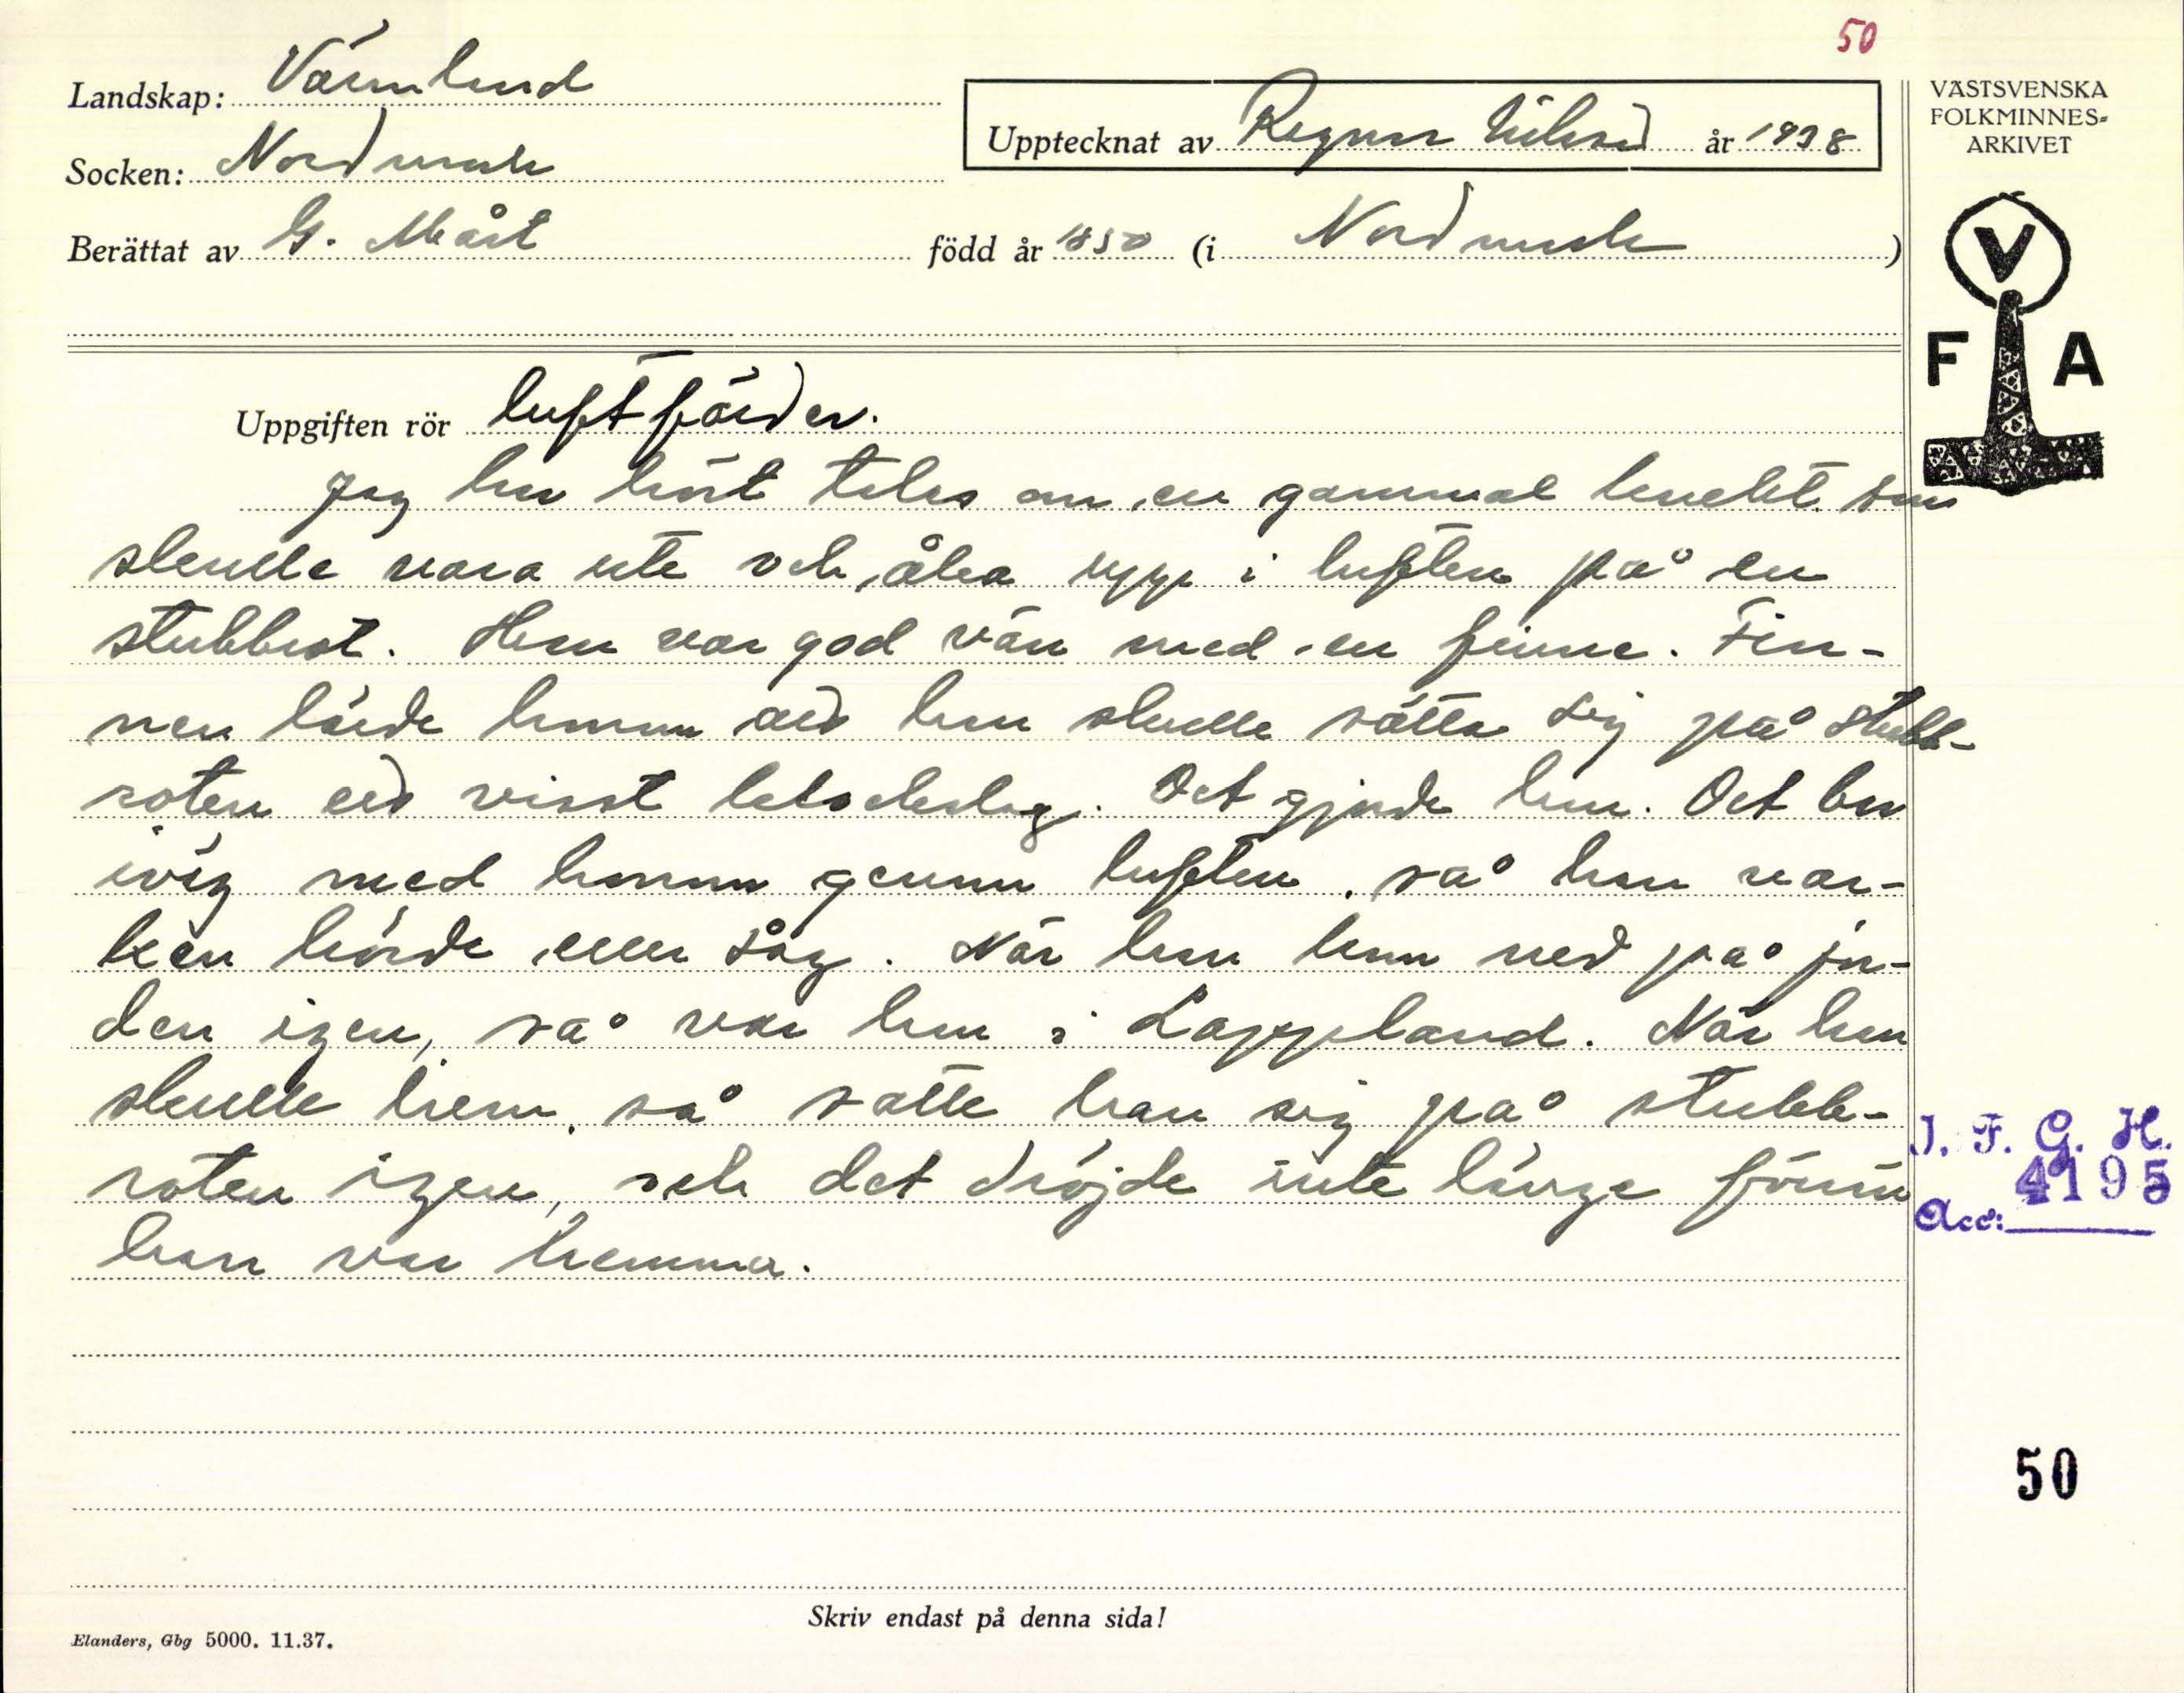 50
Landskap: Värmland
Upptecknat av Ragnar Nilsson år 1938
VÄSTSVENSKA
FOLKMINNES-
ARKIVET
Socken: Nordmark
Berättat av G. Mårt född år 1850 (i Nordmark)
V
F A
Uppgiften rör luftfärder.
Jag har hört talas om en gammal knekt som
skulle vara ute och åka upp i luften på en
stubbrot. Han var god vän med en finne. Fin-
nen lärde honom att han skulle sätta sig på stubb-
roten vid visst klockslag. Det gjorde han. Det bar
iväg med honom genom luften, så han var-
ken hörde eller såg. När han kom ned på jor-
den igen, så var han i Lappland. När han
skulle hem, så satte han sig på stubb-
roten igen, och det dröjde inte länge förrän
han var hemma.
I. F. G. H.
4195
Acc:
50
Skriv endast på denna sida!
Elanders, Gbg 5000. 11.37.